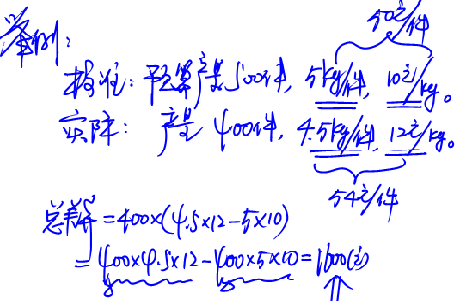 举例：
50元/件
标准：预算产量500件，5kg/件，10元/kg。
实际：产量400件，4.5kg/件，12元/kg。
54元/件
总差异=400×(4.5×12-5×10)
=400×4.5×12-400×5×10=1600(元)